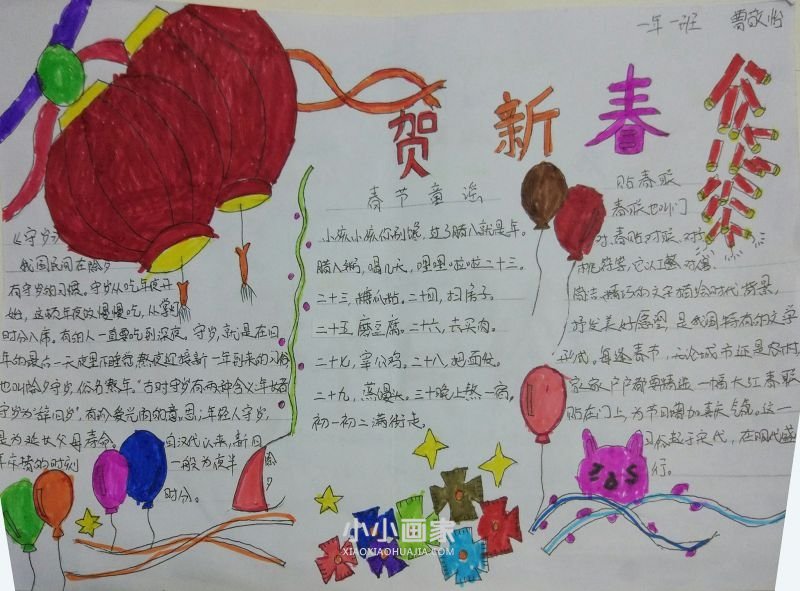 一年一班 曹敬怡
贺新春
《守岁》
我国民间在除夕
有守岁的习惯。守岁从吃年夜开
始,这顿年夜饭慢慢吃,从掌灯
时分入席。有的人一直要吃到深夜。守岁,就是在旧
年的最后一天夜里不睡觉,熬夜迎接新一年到来的习俗
也叫除夕守岁,俗名熬年。古时守岁有两种含义:年长者
守岁为"辞旧岁",有珍爱光阴的意思;年轻人守岁,
是为延长父母寿命。自汉代以来,新旧
年交替的时刻一般为夜半
时分。
除夕
春节童谣
小孩小孩你别馋,过了腊八就是年。
腊八粥,喝几天,哩哩啦啦二十三。
二十三,糖瓜粘。二十四,扫房子。
二十五,磨豆腐。二十六,去买肉。
二十七,宰公鸡。二十八,把面发。
二十九,蒸馒头。三十晚上熬一宿。
初一初二满街走。
贴春联
春联也叫门
对、春贴、对联、对
桃符等,它以工整、对偶、
简洁、精巧的文字描绘时代背景,
抒发美好愿望,是我国特有的文学
形式。每逢春节,无论城市还是农村,
家家户户都要精选一幅大红春联
贴在门上,为节日增加喜庆气氛。这一
习俗起于宋代,在明代盛
行。
小小画家
XIAOXIAOHUAJIA.COM